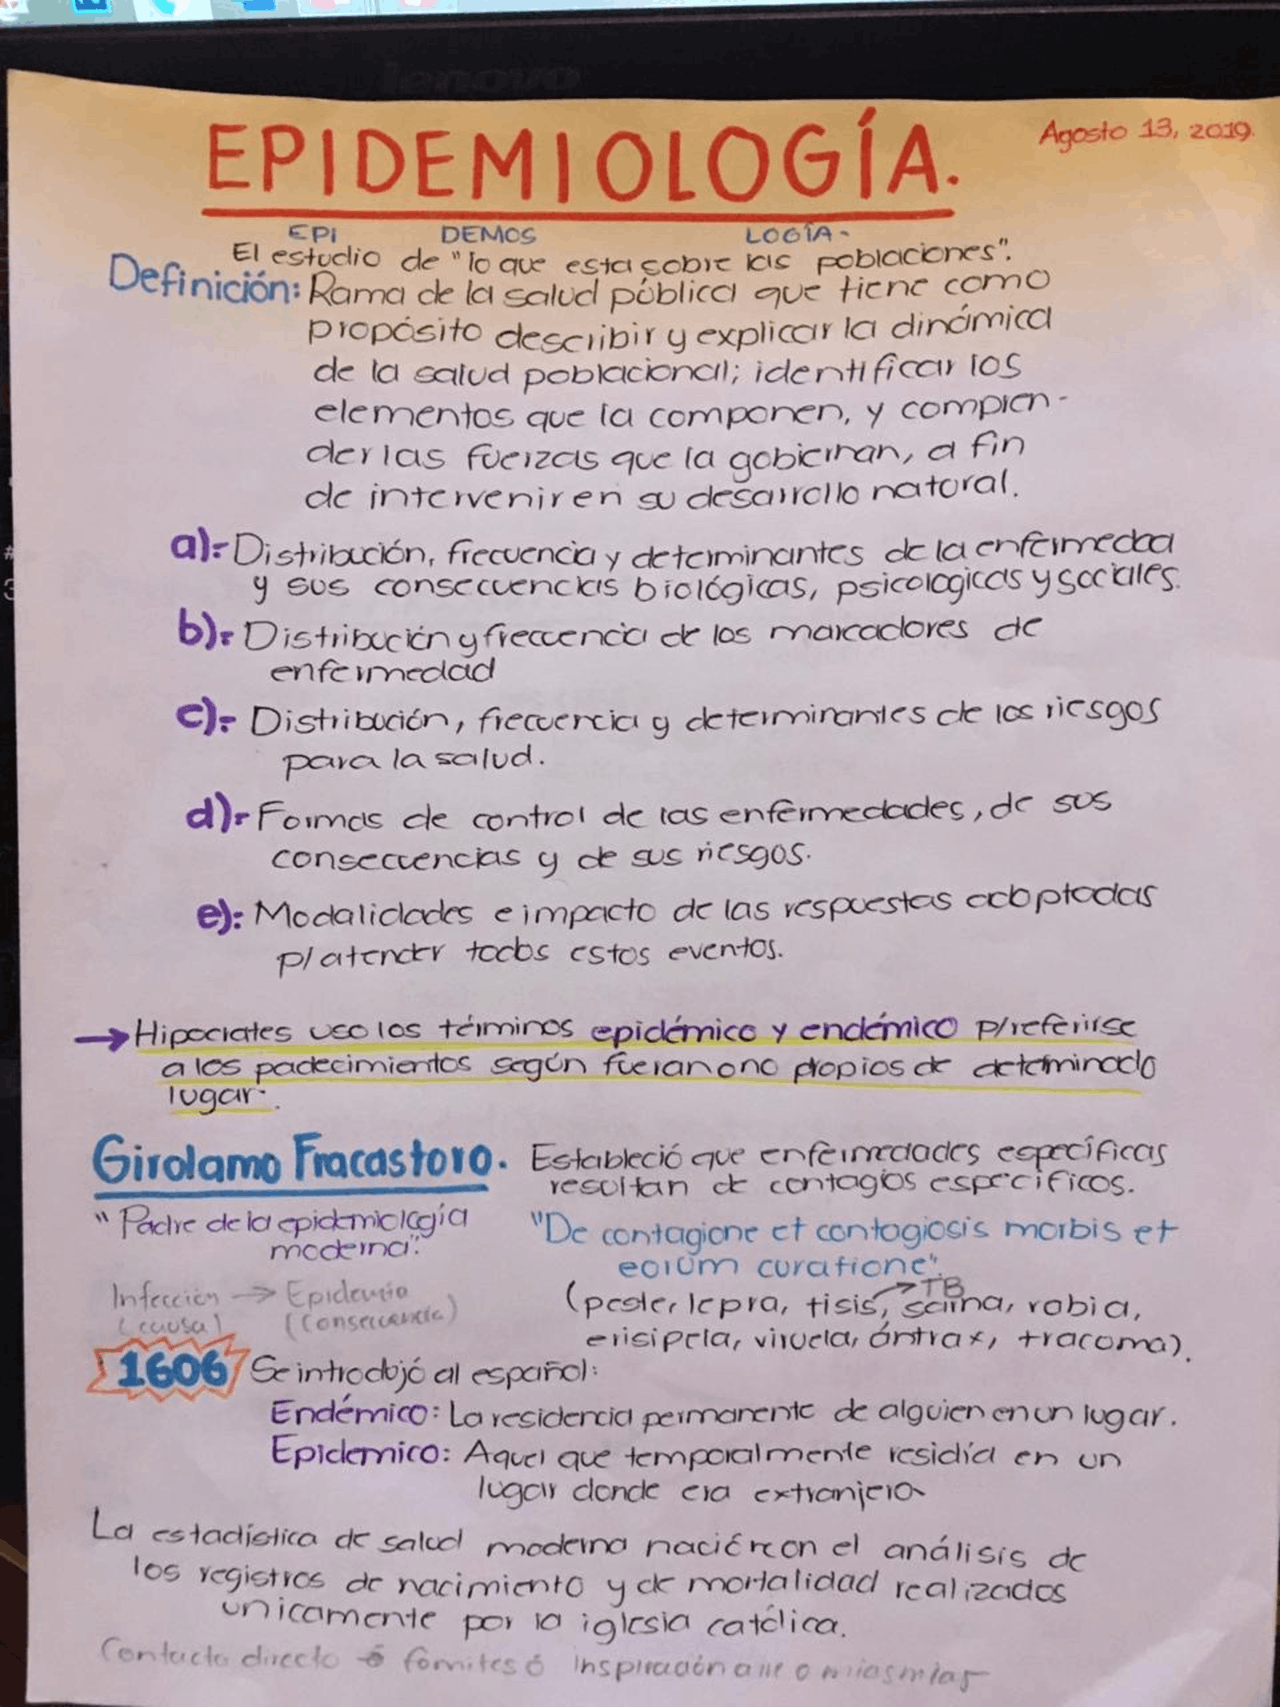 lenovo
EPIDEMIOLOGÍA.
Agosto 13, 2019.
EPI DEMOS LOGÍA-
El estudio de "lo que esta sobre las poblaciones".
Definición: Rama de la salud pública que tiene como
propósito describir y explicar la dinámica
de la salud poblacional; identificar los
elementos que la componen, y compren-
der las fuerzas que la gobiernan, a fin
de intervenir en su desarrollo natural.
a).- Distribución, frecuencia y determinantes de la enfermedad
y sus consecuencias biológicas, psicologicas y sociales.
b).- Distribución y frecuencia de los marcadores de
enfermedad
c).- Distribución, frecuencia y determinantes de los riesgos
para la salud.
d).- Formas de control de las enfermedades, de sus
consecuencias y de sus riesgos.
e).- Modalidades e impacto de las respuestas adoptadas
p/ atender todos estos eventos.
→ Hipocrates uso los términos epidémico y endémico p/referirse
a los padecimientos según fueran o no propios de determinado
lugar.
Girolamo Fracastoro. Estableció que enfermedades específicas
resultan de contagios especificos.
"Padre de la epidemiología
moderna".
"De contagione et contagiosis morbis et
eorum curatione".
Infección → Epidemia
(causa) (Consecuencia)
→ TB
(peste, lepra, tisis, sarna, rabia,
erisipela, viruela, ántrax, tracoma).
1606 Se introdujó al español:
Endémico: La residencia permanente de alguien en un lugar.
Epidemico: Aquel que temporalmente residía en un
lugar donde era extranjero
La estadística de salud moderna nació con el análisis de
los registros de nacimiento y de mortalidad realizados
unicamente por la iglesia católica.
Contacto directo ó fomites ó Inspiración aire o miasmas